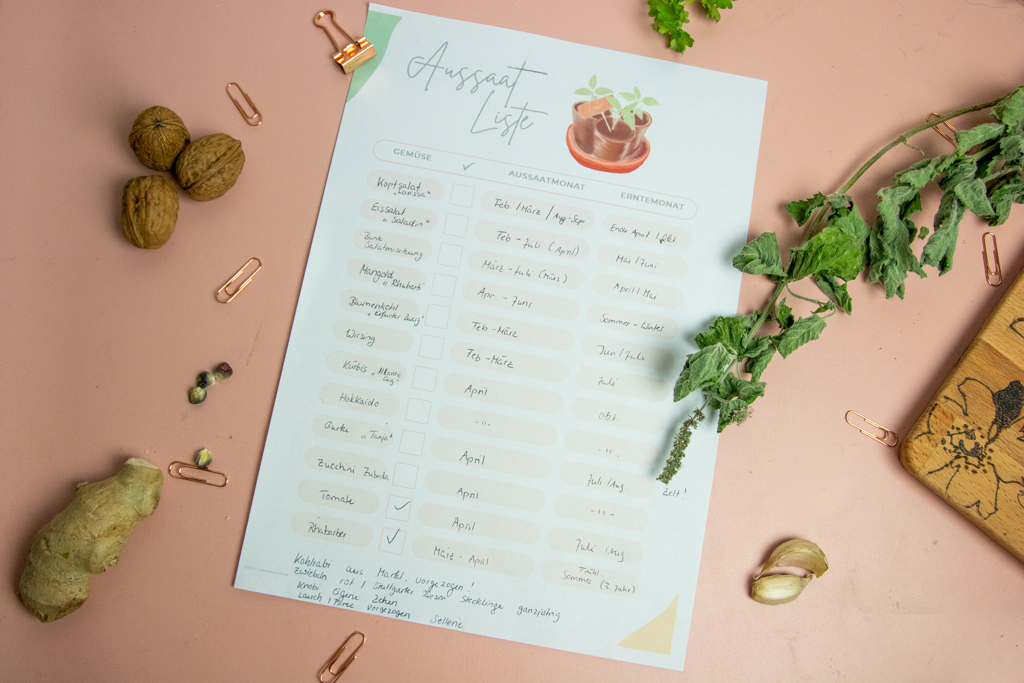 Aussaat
Liste
GEMÜSE ✓ AUSSAATMONAT ERNTEMONAT
Kopfsalat "Larissa" Feb / März / Aug-Sep Ende April / Okt.
Eissalat "Saladin" Feb - Juli (April) Mai / Juni
Bunte Salatmischung März - Juli (März) April / Mai
Mangold "Rhubarb" Apr. - Juni Sommer - Winter
Blumenkohl "Erfurter Zwerg" Feb - März Jun / Juli
Wirsing Feb - März Juli
Kürbis April Okt.
Hokkaido - " - - " -
Gurke "Tanja" April Juli / Aug
Zelt!
Zucchini Zuboda April - " -
Tomate ✓ April Juli / Aug
Rhabarber ✓ März - April Frühl. Sommer (2. Jahr)
Kohlrabi aus Markt. vorgezogen!
Zwiebeln rot / Stuttgarter Riesen Stecklinge ganzjährig
Knobi eigene Zehen
Lauch / Poree vorgezogen Sellerie